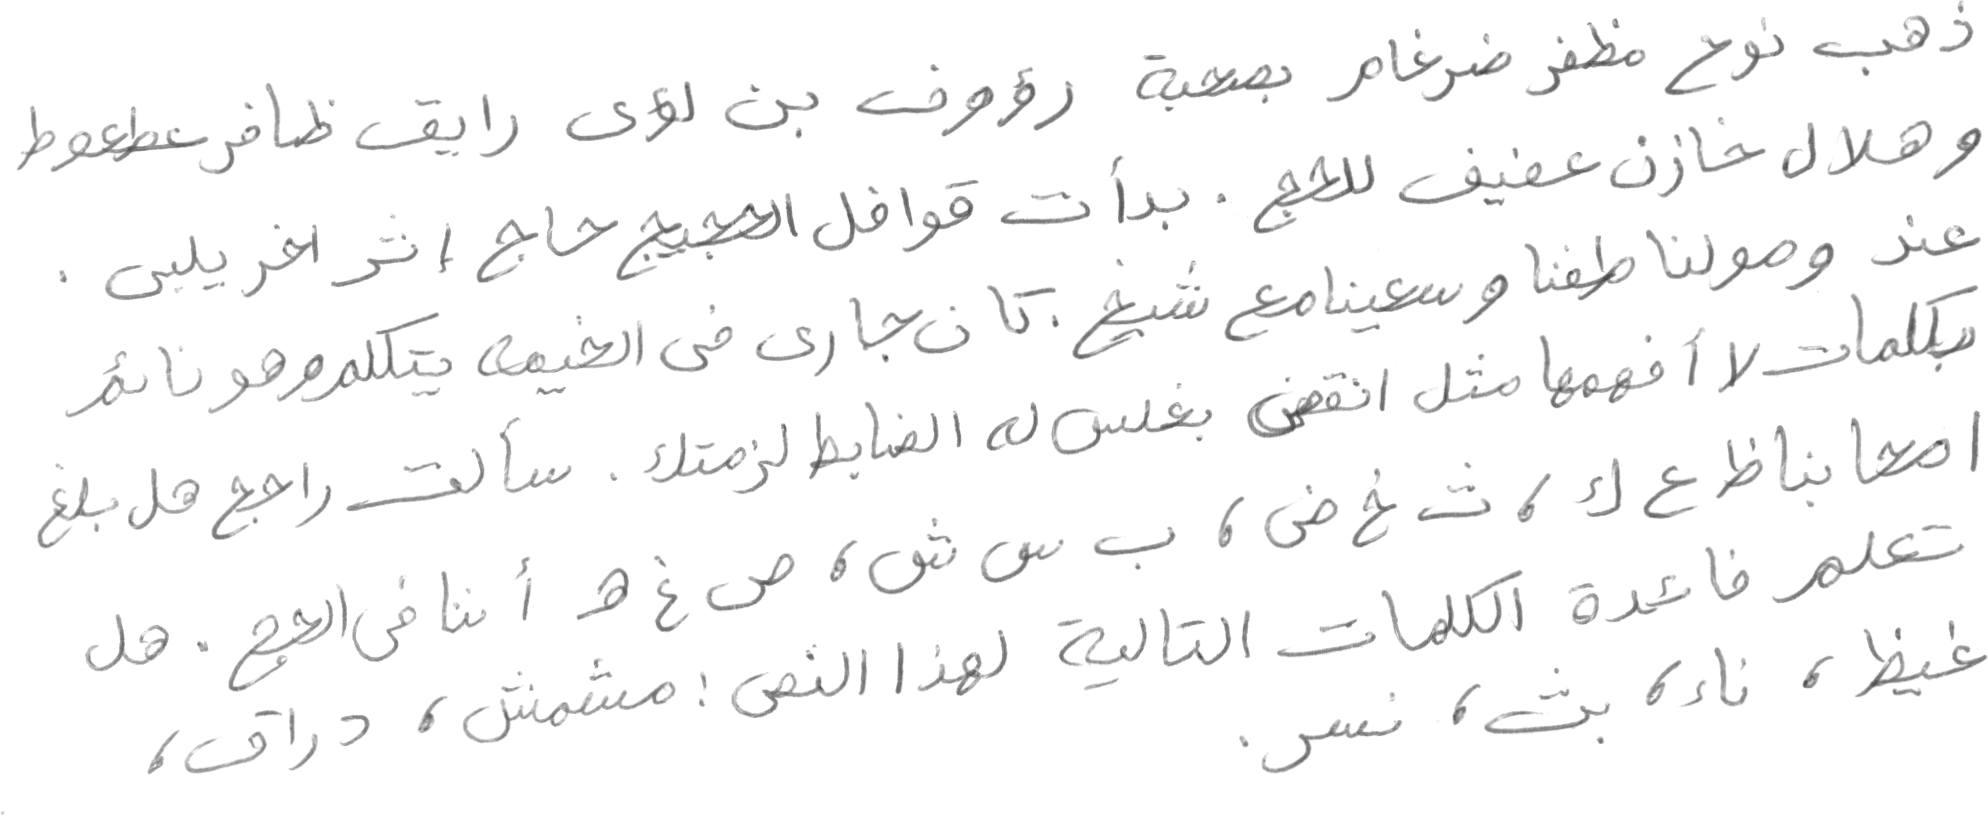 ذهب نوح مظفر ضرغام بصحبة رؤوف بن لؤى رايق ظافر عطعوط
وهلال خازن عفيف للحج . بدأت قوافل الحجيج حاج إثر اخر يلبى .
عند وصولنا طفنا وسعينا مع شيخ . كان جارى فى الخيمه يتكلم وهو نائم
بكلمات لا أفهمها مثل انقض بغلس له الضابط لزمتك . سألت راجح هل بلغ
اصحابنا ظ ع ك ، ث خ ض ، ب س ش ، ص غ ه أننا فى الحج . هل
تعلم فائدة الكلمات التالية لهذا النص : مشمش ، دراق ،
غيظ ، ناء ، بث ، نسر .